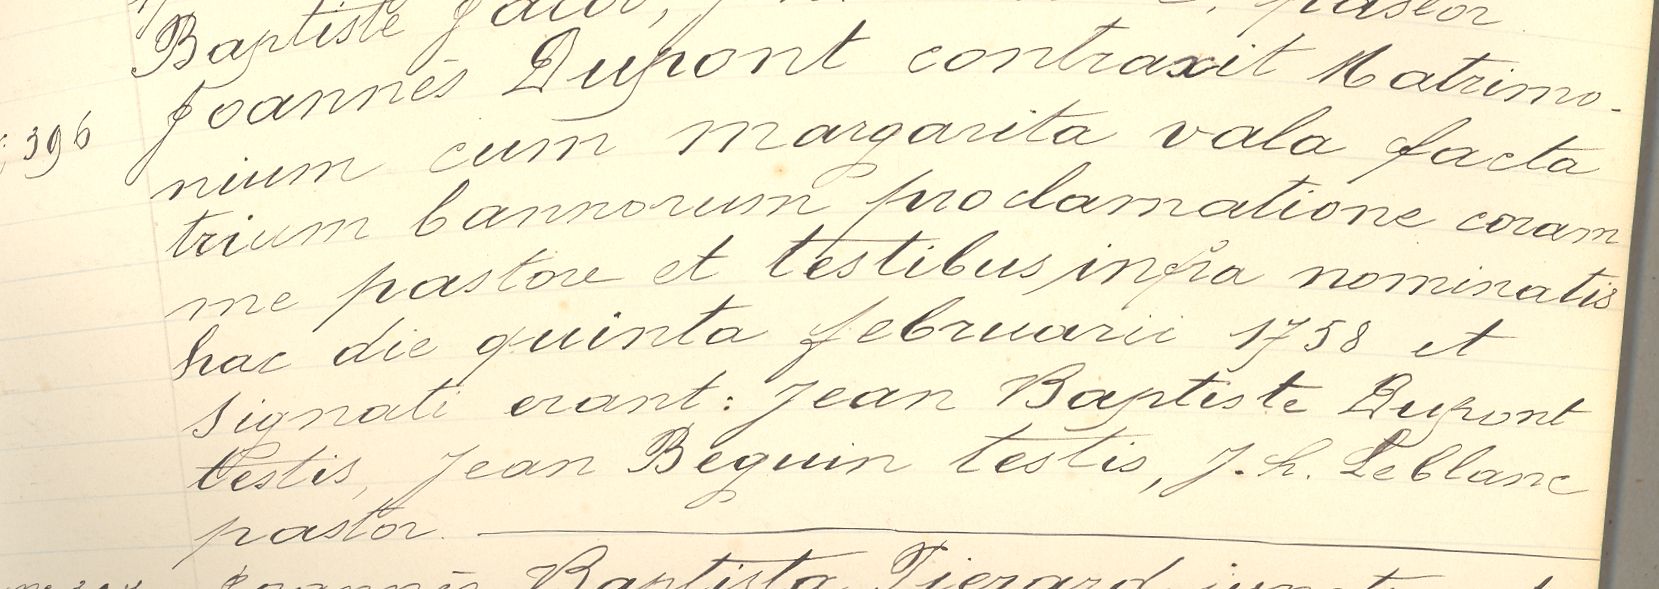 Baptiste Jacob, pastor
Joannes Dupont contraxit Matrimo-
396
nium cum margarita vala facta
trium bannorum proclamatione coram
me pastore et testibus infra nominatis
hac die quinta februarii 1758 et
signati erant: Jean Baptiste Dupont
testis, Jean Beguin testis, J. h. Leblanc
pastor.
Joannes Baptista Pierard